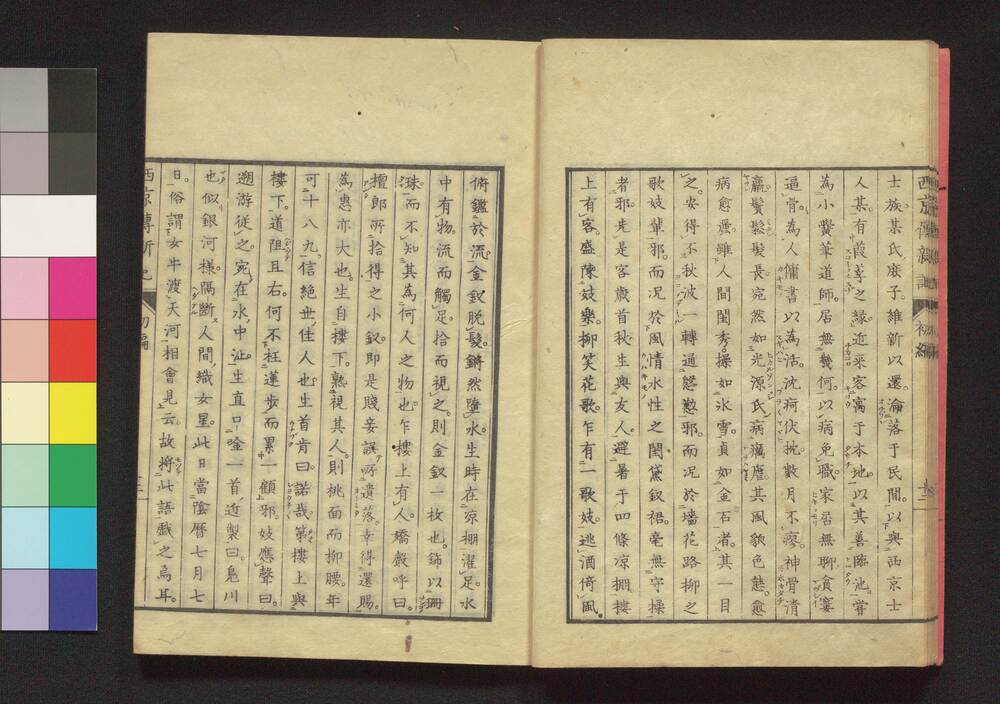 士族某氏庶子。維新以還。淪落于民間。以與西京士
人某有葭莩之緣。近來客寓于本地。以其善臨池。嘗
為小黌筆道師。居無幾何。以病免職。家居無聊貧窶
逼骨。為人傭書以為活。沈痾伏枕。數月不瘳。神骨清
羸。鬢鬆髮長。宛然如光源氏病瘧。其風貌色態。愈
病愈。雖人間閨秀。操如冰雪。貞如金石者。其一目
之。安得不秋波一轉通慇懃邪。而況於墻花路柳之
歌妓輩邪。而況於風情水性之閨黛釵裙。毫無守操
者邪。先是客歲首秋。生與友人。避暑于四條涼棚。樓
上有客。盛陳妓樂。柳笑花歌。乍有一歌妓。逃酒倚風。
俯鑑於流。金釵脫髮。鏘然墮水。生時在涼棚濯足。水
中有物。流而觸足。拾而視之。則金釵一枚也。飾以珊
珠。而不知其為何人之物也。乍樓上有人。嬌聲呼曰。
檀郎所拾得之小釵。即是賤妾誤所遺落。幸得還賜。
為惠亦大也。生自樓下。熟視其人。則桃面而柳腰。年
可十八九。信絕世佳人也。生首肯曰。諾哉。第樓上與
樓下。道阻且右。何不枉蓮步而累一顧邪。妓應聲曰。
遡游從之。宛在水中沚。生直口唫一首近製曰。鳧川
也似銀河様。隔斷人間織女星。此日當陰曆七月七
日。俗謂女牛渡天河相會見云。故將此語戲之焉耳。
西京傳新記 初編